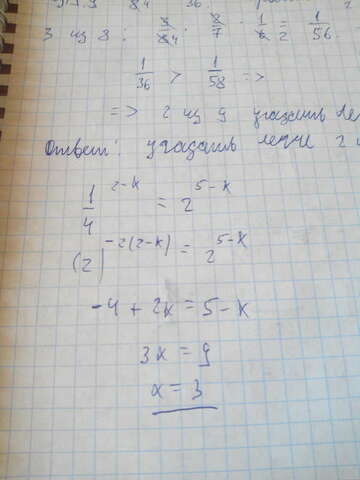 3 из 8 : 3/84 · 8/7 · 1/6 2 = 1/56.
1/36 > 1/58 =>
=> 2 из 9 угадать ле
Ответ: угадать легче 2 и
1/4^(2-x) = 2^(5-x)
(2)^(-2(2-x)) = 2^(5-x)
-4 + 2x = 5 - x
3x = 9
x = 3